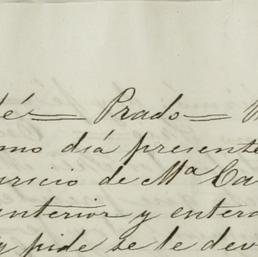 é= Prado= 
mo dia presente
uricio de Mª Ca
anterior y entera
y pide se le dev